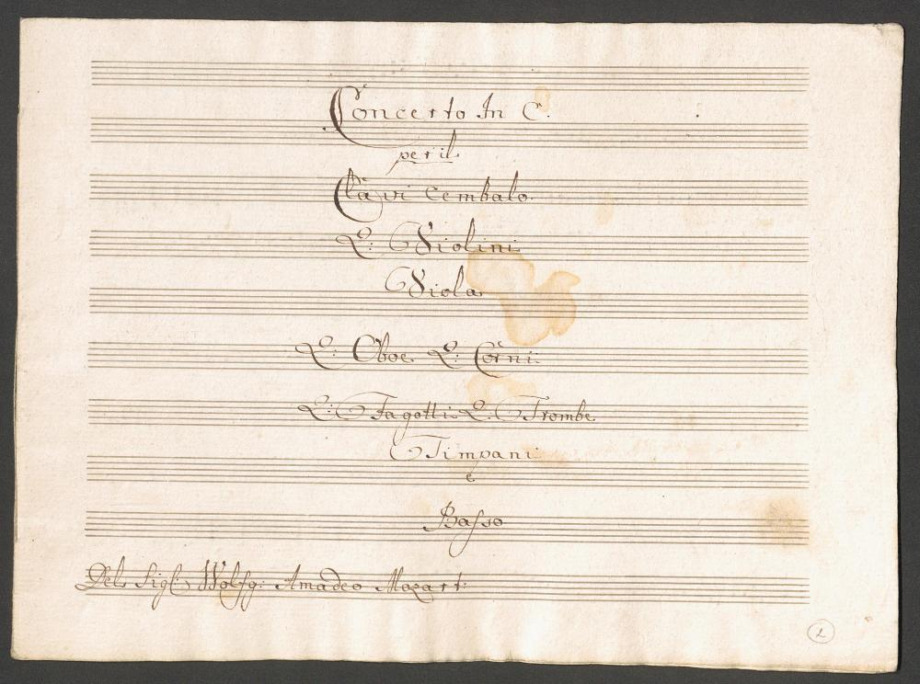 Concerto In C.
per il
Clavi Cembalo.
2: Violini
Viola
2: Oboe 2: Corni
2: Fagotti 2: Trombe
Timpani
e
Baſso
Del Sigl: Wolfg: Amadeo Mozart:
2